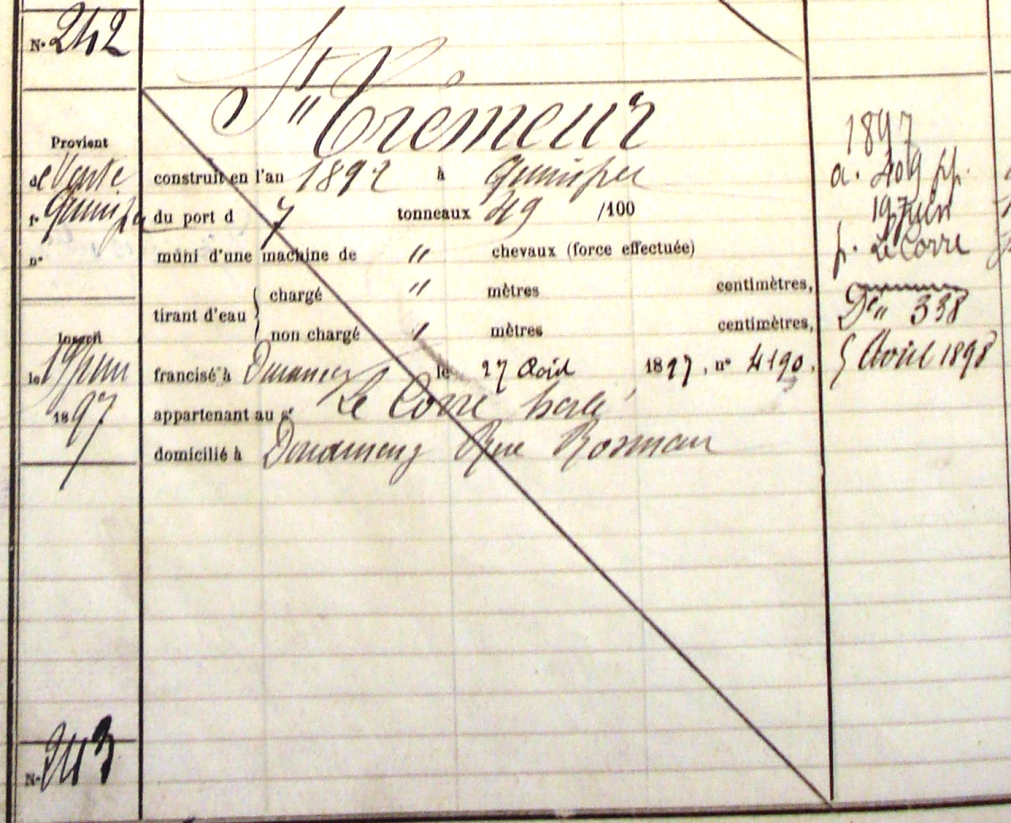 N° 242
St Trémeur
Provient
de Vente
f° Quimper
n°
Inscrit
le 19 juin
1897
construit en l'an 1892 à Quimper
du port d 7 tonneaux 49 /100
muni d'une machine de " chevaux (force effectuée)
tirant d'eau { chargé " mètres centimètres,
non chargé " mètres centimètres,
francisé à Douarnenez le 27 Août 1897, n° 4190.
appartenant au sr Le Corre
domicilié à Douarnenez Rue Rosmeur
1897
a. 409 pp.
19 Juin
p. Le Corre
Den 338
5 Avril 1898
N° 243